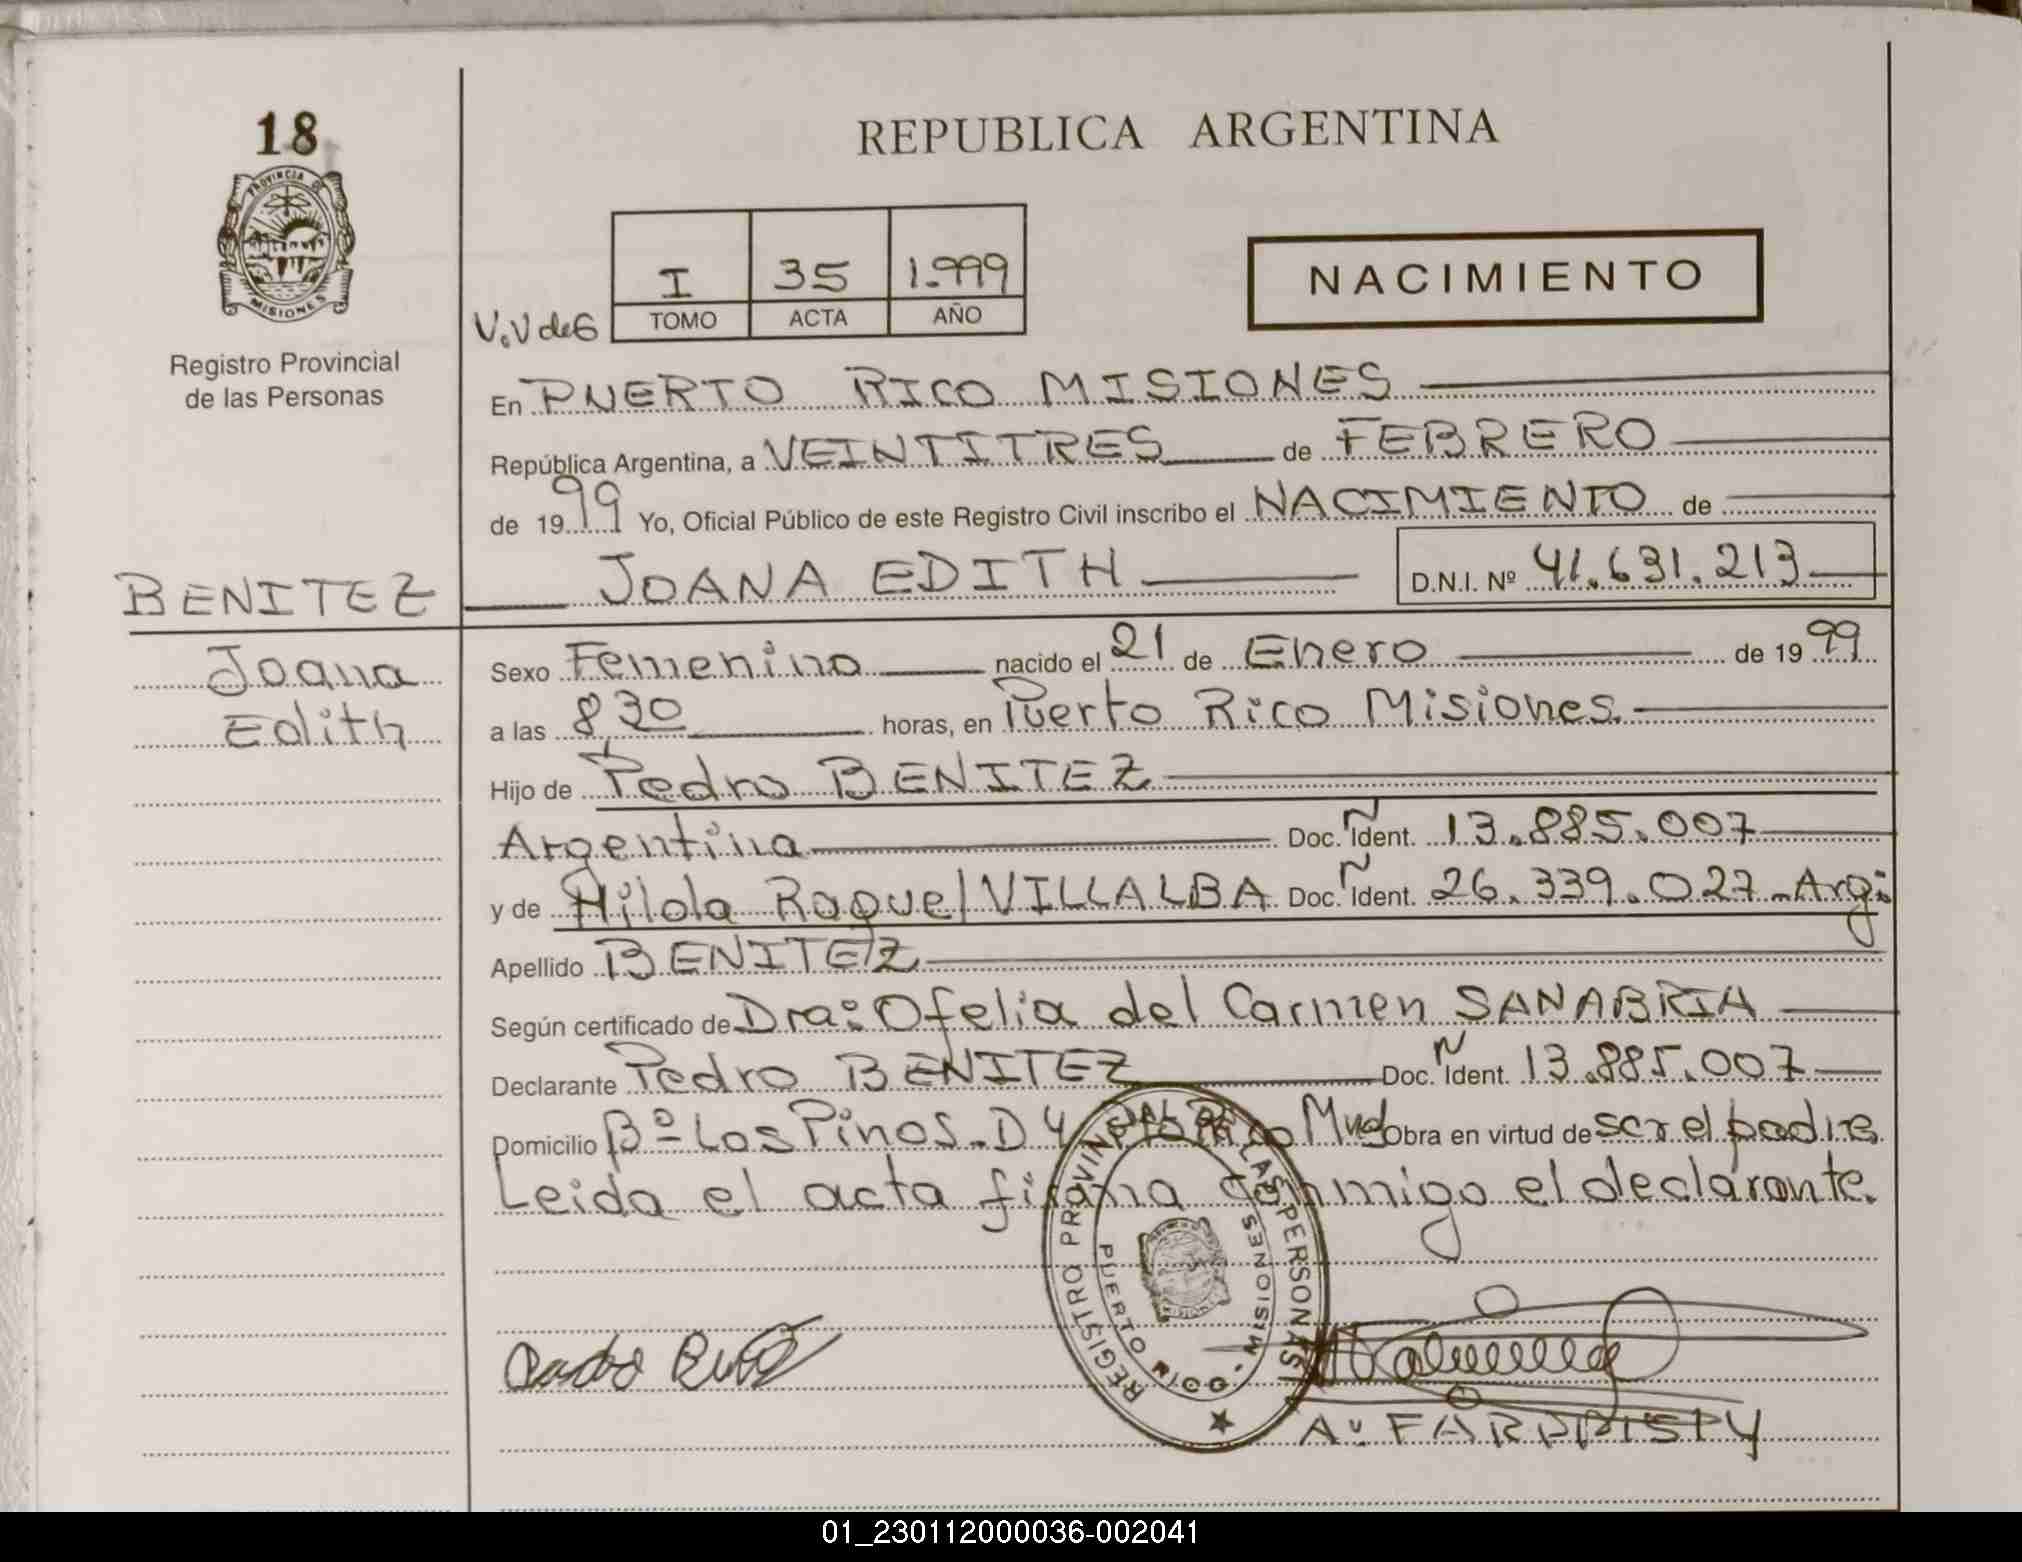 18
REPUBLICA ARGENTINA
PROVINCIA DE
MISIONES
Registro Provincial
de las Personas
V.V de G
I 35 1.999
TOMO ACTA AÑO
NACIMIENTO
En PUERTO RICO MISIONES
República Argentina, a VEINTITRES de FEBRERO
de 1999 Yo, Oficial Público de este Registro Civil inscribo el NACIMIENTO de
BENITEZ JOANA EDITH D.N.I. Nº 41.631.213
Joana
Edith
Sexo Femenino nacido el 21 de Enero de 1999
a las 830 horas, en Puerto Rico Misiones.
Hijo de Pedro BENITEZ
Argentina Doc. Ñ Ident. 13.885.007
y de Hilda Raquel VILLALBA Doc. Ñ Ident. 26.339.027-Arg:
Apellido BENITEZ
Según certificado de Dra: Ofelia del Carmen SANABRIA
Declarante Pedro BENITEZ Doc. Ñ Ident. 13.885.007
Domicilio Bº-Los Pinos-D 4 Pto Rico Mnes Obra en virtud de ser el padre
Leida el acta firma conmigo el declarante.
REGISTRO PROVINCIAL DE LAS PERSONAS
PUERTO RICO - MISIONES
MISIONES
01_230112000036-002041